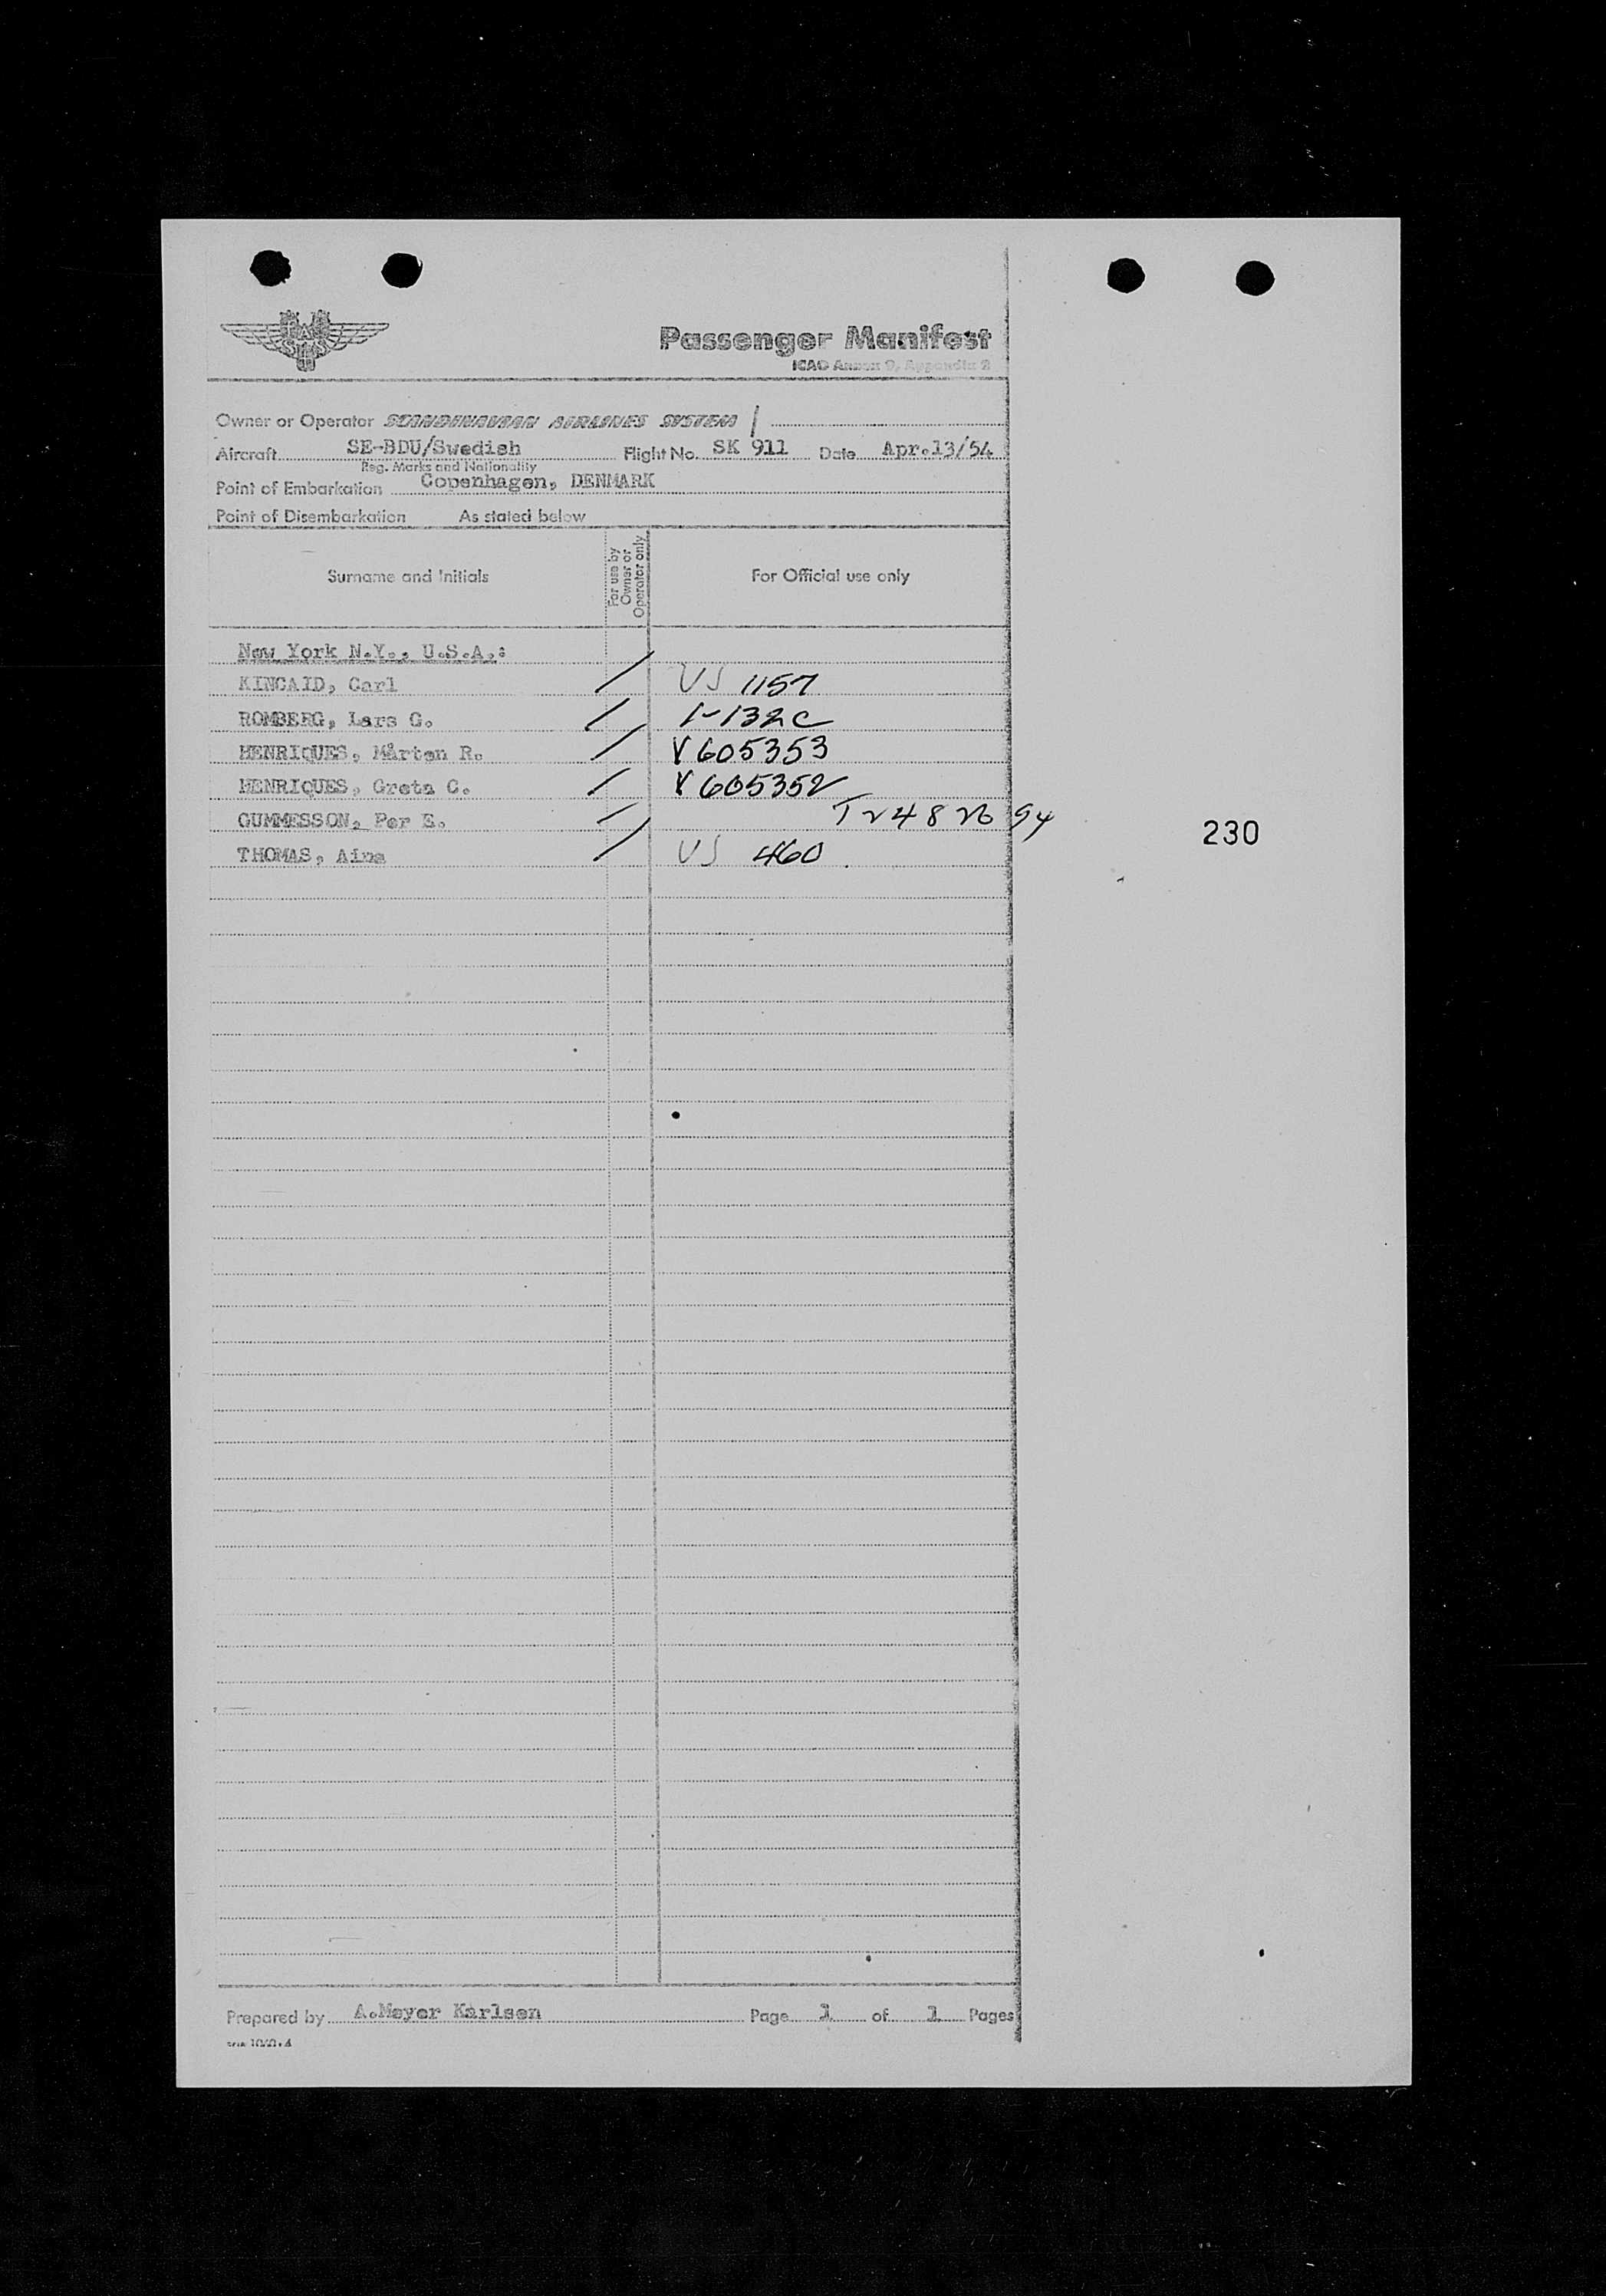 Passenger Manifest
ICAO Annex 9, Appendix 2
Owner or Operator SCANDINAVIAN AIRLINES SYSTEM /
Aircraft SE-BDU/Swedish Flight No. SK 911 Date Apr.13/54
Reg. Marks and Nationality
Point of Embarkation Copenhagen, DENMARK
Point of Disembarkation As stated below
Surname and Initials For use by Owner or Operator only For Official use only
New York N.Y., U.S.A.:
KINCAID, Carl / US 1157
ROMBERG, Lars G. / 1-132c
HENRIQUES, Mårten R. / V605353
HENRIQUES, Greta C. / V605352
GUMMESSON, Per E. /
THOMAS, Aina / US 460
230
Prepared by A.Meyer Karlsen Page 1 of 1 Pages